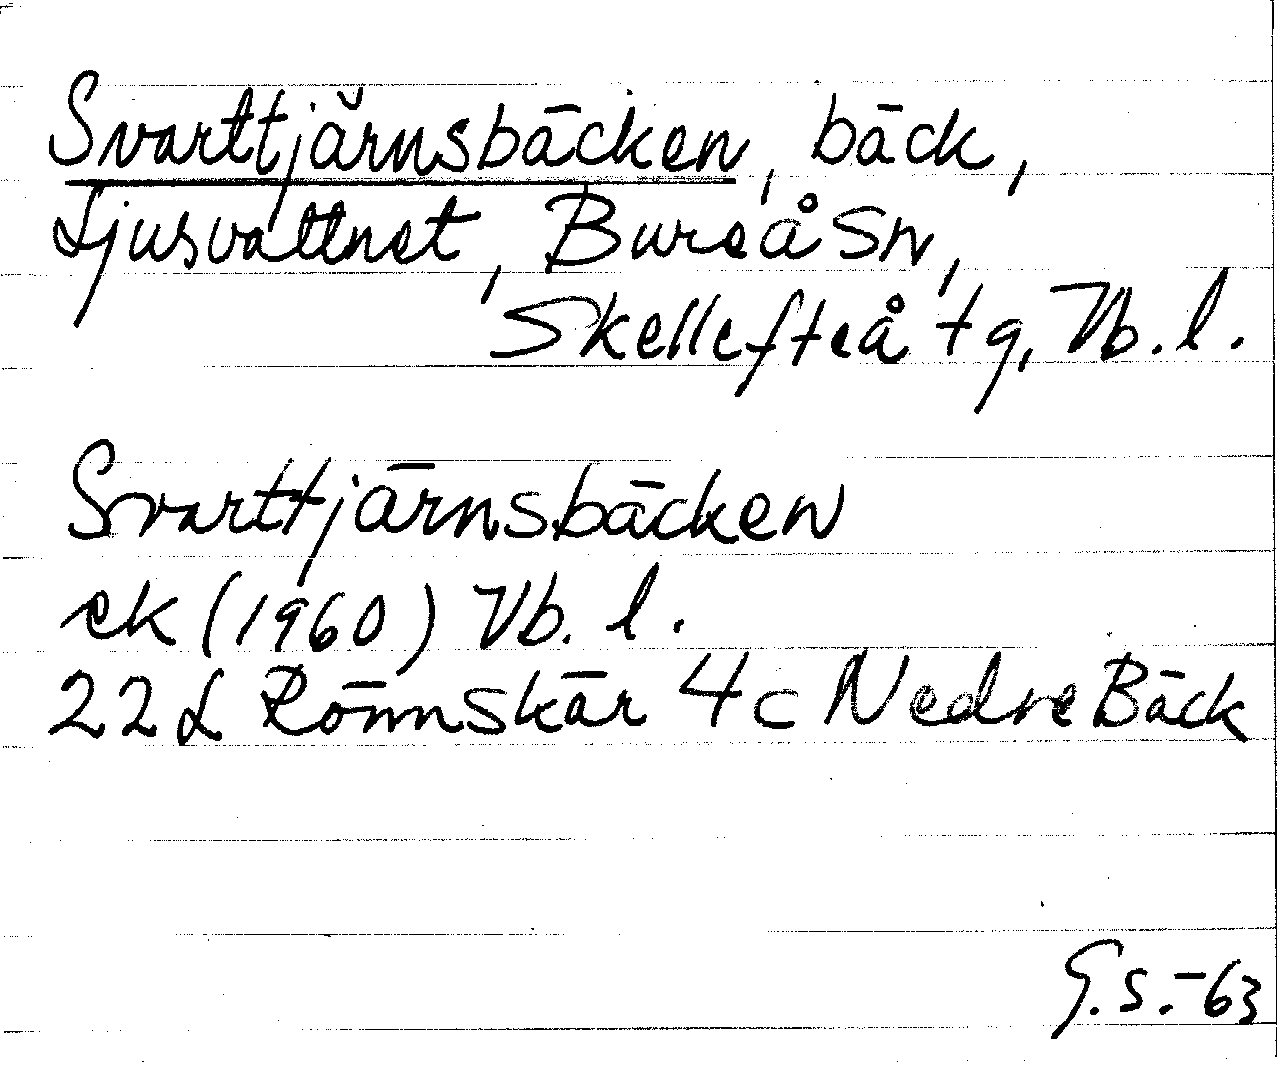 Svarttjärnsbäcken, bäck,
Ljusvattnet, Bureå sn,
Skellefteå tg, Vb. l.
Svarttjärnsbäcken
ek (1960) Vb. l.
22 L Rönnskär 4c Nedre Bäck
G.S.-63